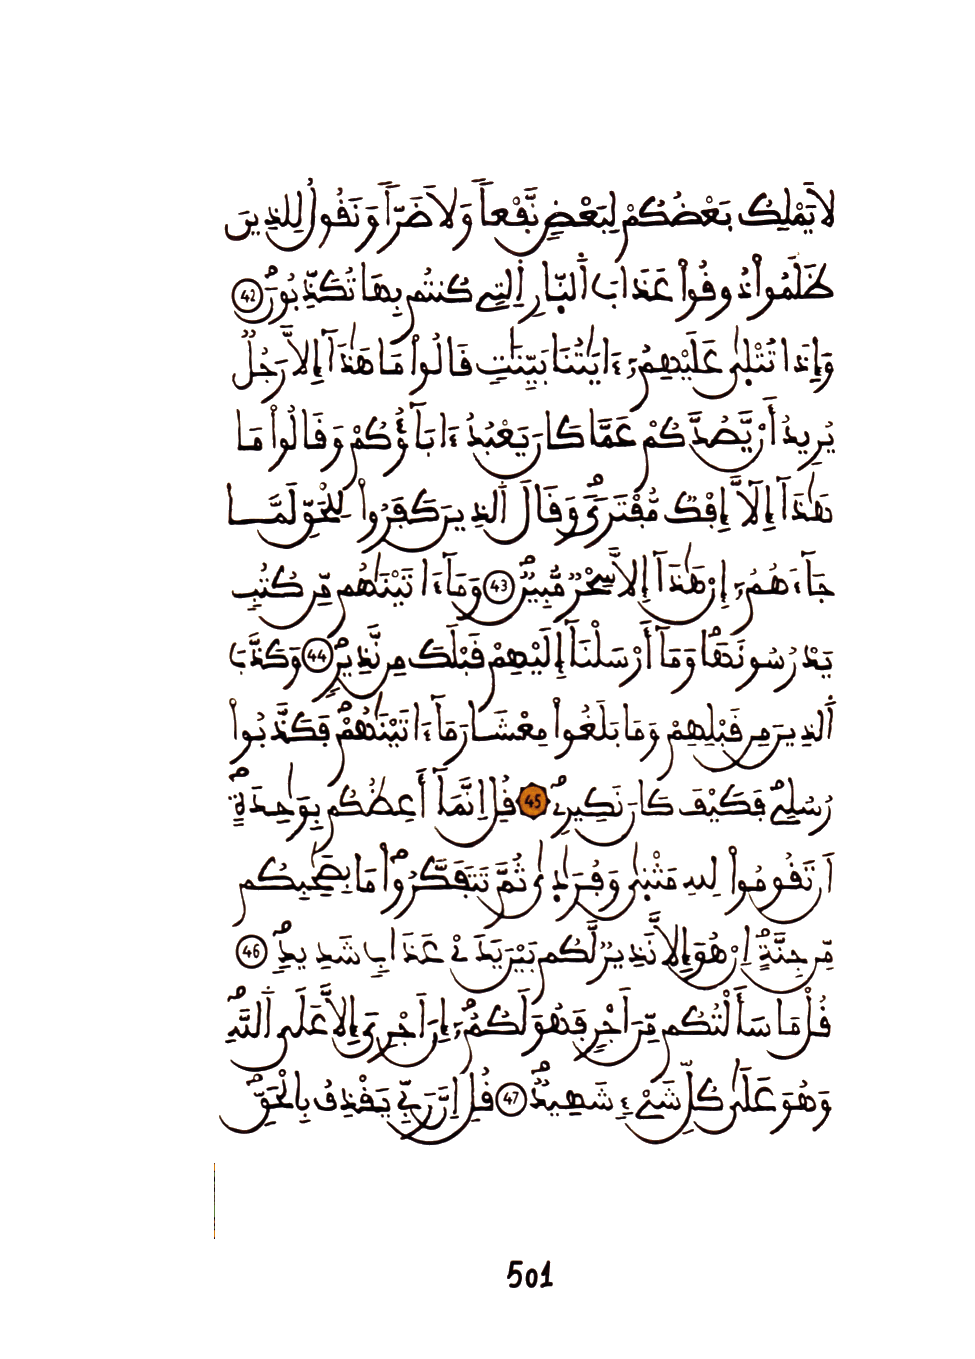 لَا يَمْلِكُ بَعْضُكُمْ لِبَعْضٍ نَّفْعاً وَلَا ضَرّاً وَنَقُولُ لِلذِينَ
ظَلَمُواْ ذُوقُواْ عَذَابَ اَ۬لنّ۪ارِ اِ۬لتِے كُنتُم بِهَا تُكَذِّبُونَۖ 42
وَإِذَا تُتْل۪ىٰ عَلَيْهِمُۥٓ ءَايَٰتُنَا بَيِّنَٰتٖ قَالُواْ مَا هَٰذَآ إِلَّا رَجُلٞ
يُرِيدُ أَنْ يَّصُدَّكُمْ عَمَّا كَانَ يَعْبُدُ ءَابَآؤُكُمْ وَقَالُواْ مَا
هَٰذَآ إِلَّآ إِفْكٞ مُّفْتَرىٗۖ وَقَالَ اَ۬لذِينَ كَفَرُواْ لِلْحَقِّ لَمَّا
جَآءَهُمُۥٓ إِنْ هَٰذَآ إِلَّا سِحْرٞ مُّبِينٞۖ 43 وَمَآ ءَاتَيْنَٰهُم مِّن كُتُبٖ
يَدْرُسُونَهَاۖ وَمَآ أَرْسَلْنَآ إِلَيْهِمْ قَبْلَكَ مِن نَّذِيرٖۖ 44 وَكَذَّبَ
اَ۬لذِينَ مِن قَبْلِهِمْ وَمَا بَلَغُواْ مِعْشَارَ مَآ ءَاتَيْنَٰهُمْۖ فَكَذَّبُواْ
رُسُلِےۖ فَكَيْفَ كَانَ نَكِيرِۦۖ 45 قُلِ اِنَّمَآ أَعِظُكُم بِوَٰحِدَةٍۖ
اَن تَقُومُواْ لِلهِ مَثْن۪ىٰ وَفُرَٰد۪ىٰ ثُمَّ تَتَفَكَّرُواْۖ مَا بِصَٰحِبِكُم
مِّن جِنَّةٍۖ اِنْ هُوَ إِلَّا نَذِيرٞ لَّكُم بَيْنَ يَدَےْ عَذَابٖ شَدِيدٖۖ 46
قُلْ مَا سَأَلْتُكُم مِّنَ اَجْرٖ فَهُوَ لَكُمُۥٓۖ إِنَ اَجْرِيَ إِلَّا عَلَى اَ۬للَّهِۖ
وَهُوَ عَلَىٰ كُلِّ شَےْءٖ شَهِيدٞۖ 47 قُلِ اِنَّ رَبِّے يَقْذِفُ بِالْحَقِّۖ
501